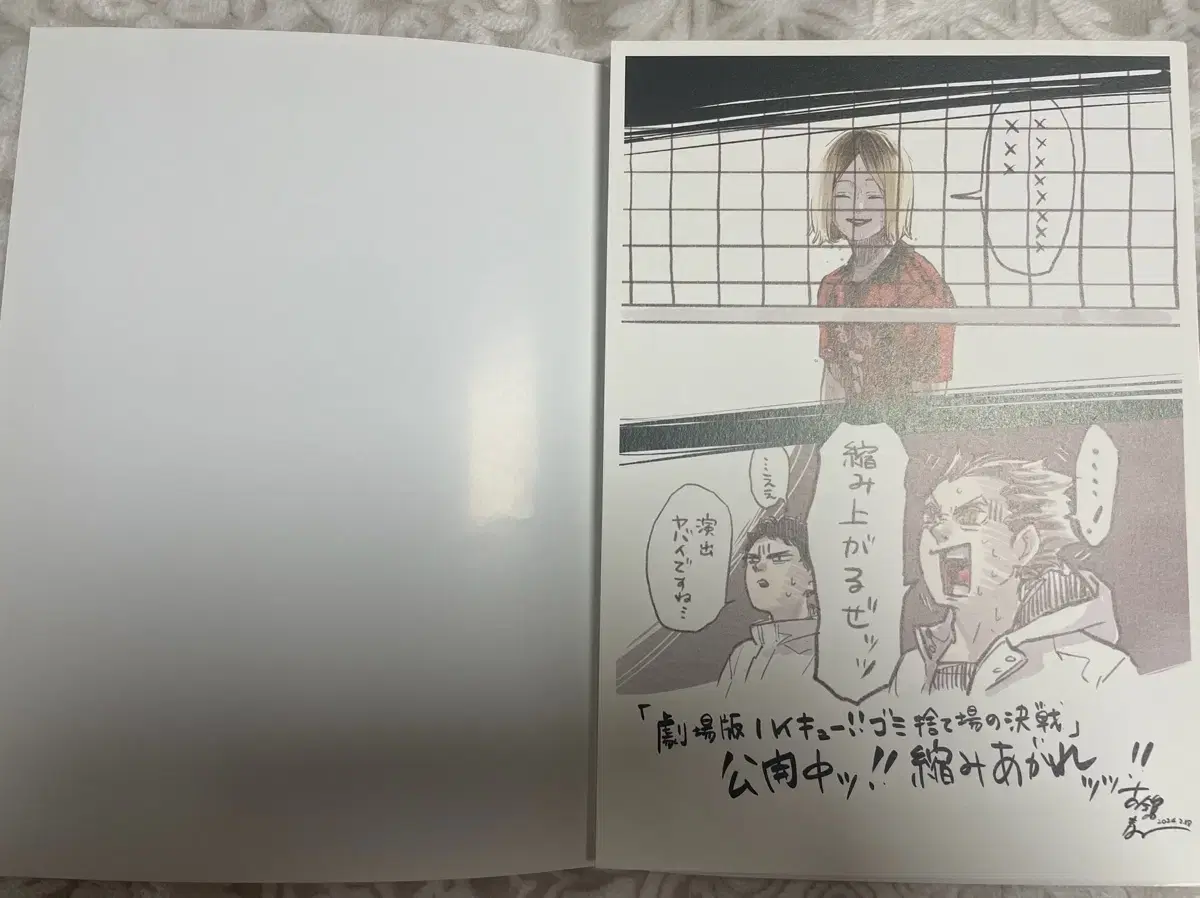 ×××××××
×××
……！
縮み上がるぜッッ
…ええ
演出
ヤバイですね…
「劇場版ハイキュー!!ゴミ捨て場の決戦」
公開中ッ!! 縮みあがれッッ!!